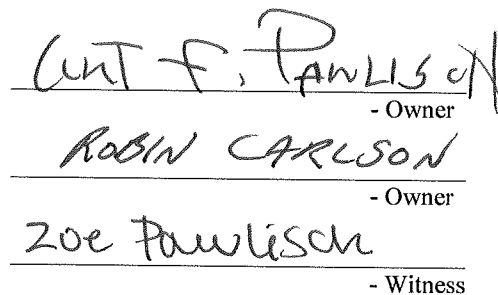 Curt F. Pawlisch
- Owner
Robin Carlson
- Owner
Zoe Pawlisch
- Witness